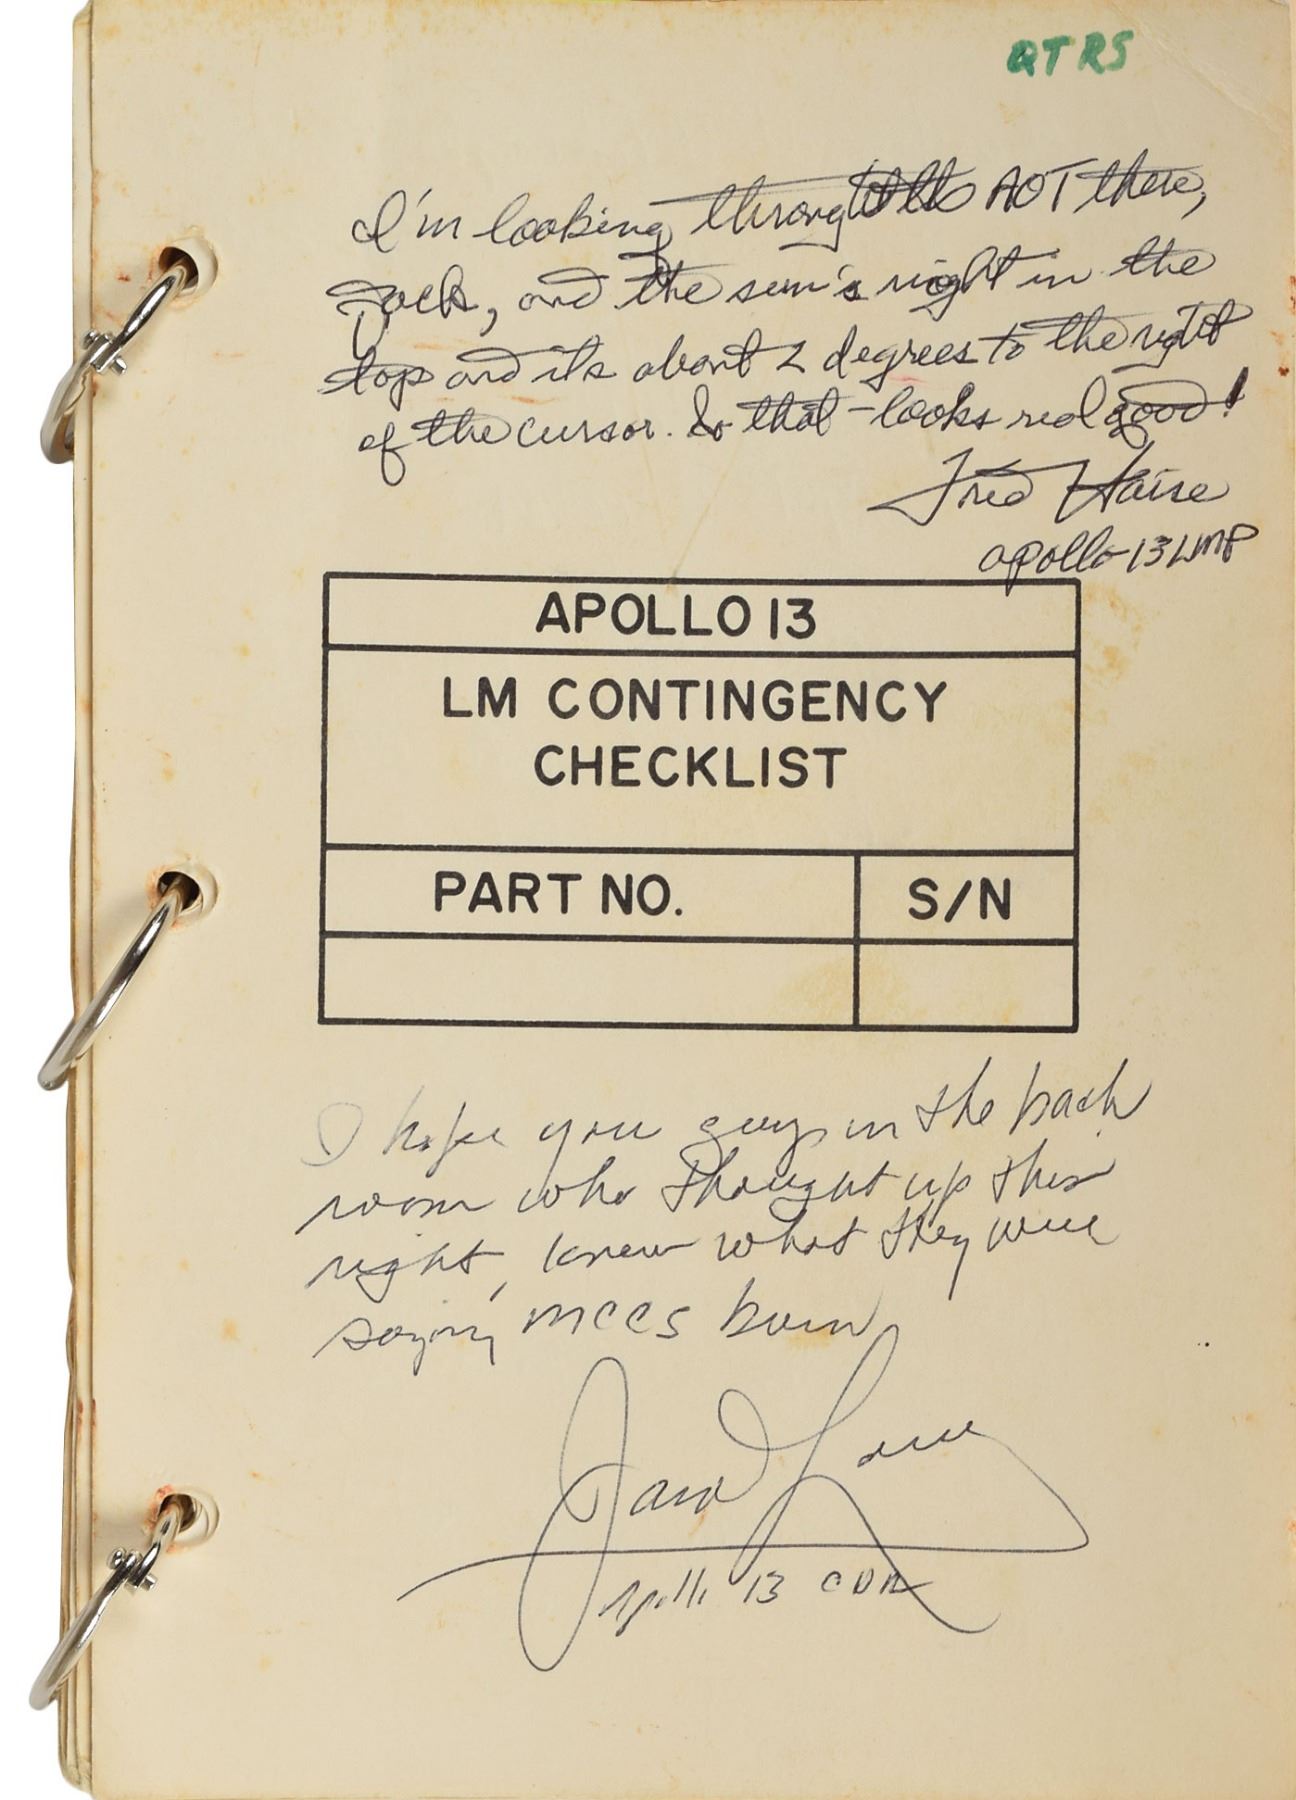 QTRS
I'm looking through the AOT there,
Jack, and the sun's right in the
top and its about 2 degrees to the right
of the cursor. So that - looks real good!
Fred Haise
Apollo 13 LMP
APOLLO 13
LM CONTINGENCY
CHECKLIST
PART NO. S/N
I hope you guys in the back
room who thought up this
right, knew what they were
saying, MCC5 burn
James Lovell
Apollo 13 CDR